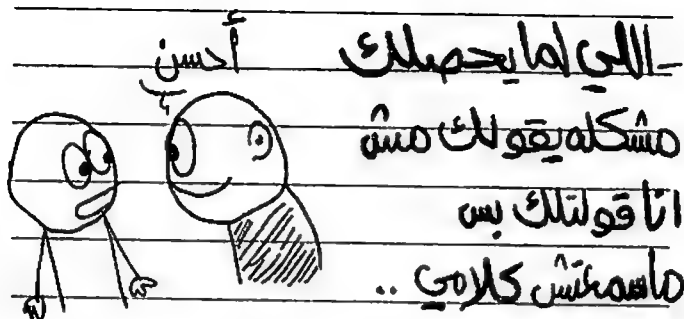 - اللي لما يحصلك
مشكله يقولك مش
انا قولتلك بس
ماسمعتش كلامي ..
أحسن